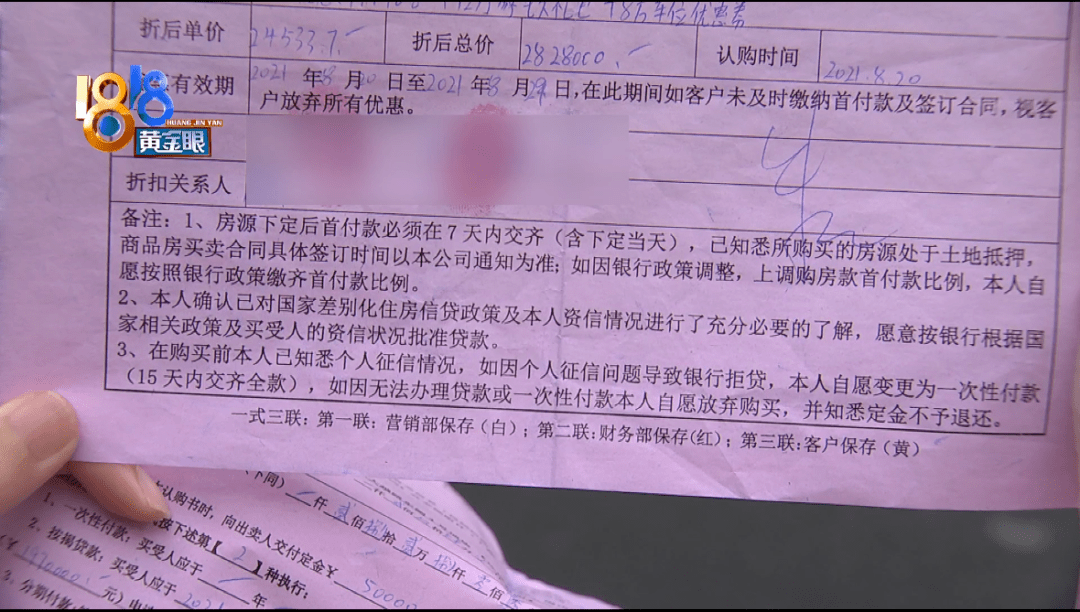 车位优惠券
折后单价 24533.7 折后总价 2828000. 认购时间 2021.8.20
有效期 2021年8月20日至2021年8月日,在此期间如客户未及时缴纳首付款及签订合同,视客
户放弃所有优惠。
1818
HUANG JIN YAN
黄金眼
折扣关系人
备注:1、房源下定后首付款必须在7天内交齐(含下定当天),已知悉所购买的房源处于土地抵押,
商品房买卖合同具体签订时间以本公司通知为准;如因银行政策调整,上调购房款首付款比例,本人自
愿按照银行政策缴齐首付款比例。
2、本人确认已对国家差别化住房信贷政策及本人资信情况进行了充分必要的了解,愿意按银行根据国
家相关政策及买受人的资信状况批准贷款。
3、在购买前本人已知悉个人征信情况,如因个人征信问题导致银行拒贷,本人自愿变更为一次性付款
(15天内交齐全款),如因无法办理贷款或一次性付款本人自愿放弃购买,并知悉定金不予退还。
一式三联:第一联:营销部保存(白);第二联:财务部保存(红);第三联:客户保存(黄)
下同) 仟贰佰捌拾贰万捌仟 佰
认购书时,向出卖人交付定金¥ 50000
按下述第【2】种执行:
1、一次性付款:买受人应于 年
2、按揭贷款:买受人应于 2021
(¥ 1970000. 元)
3、分期付款